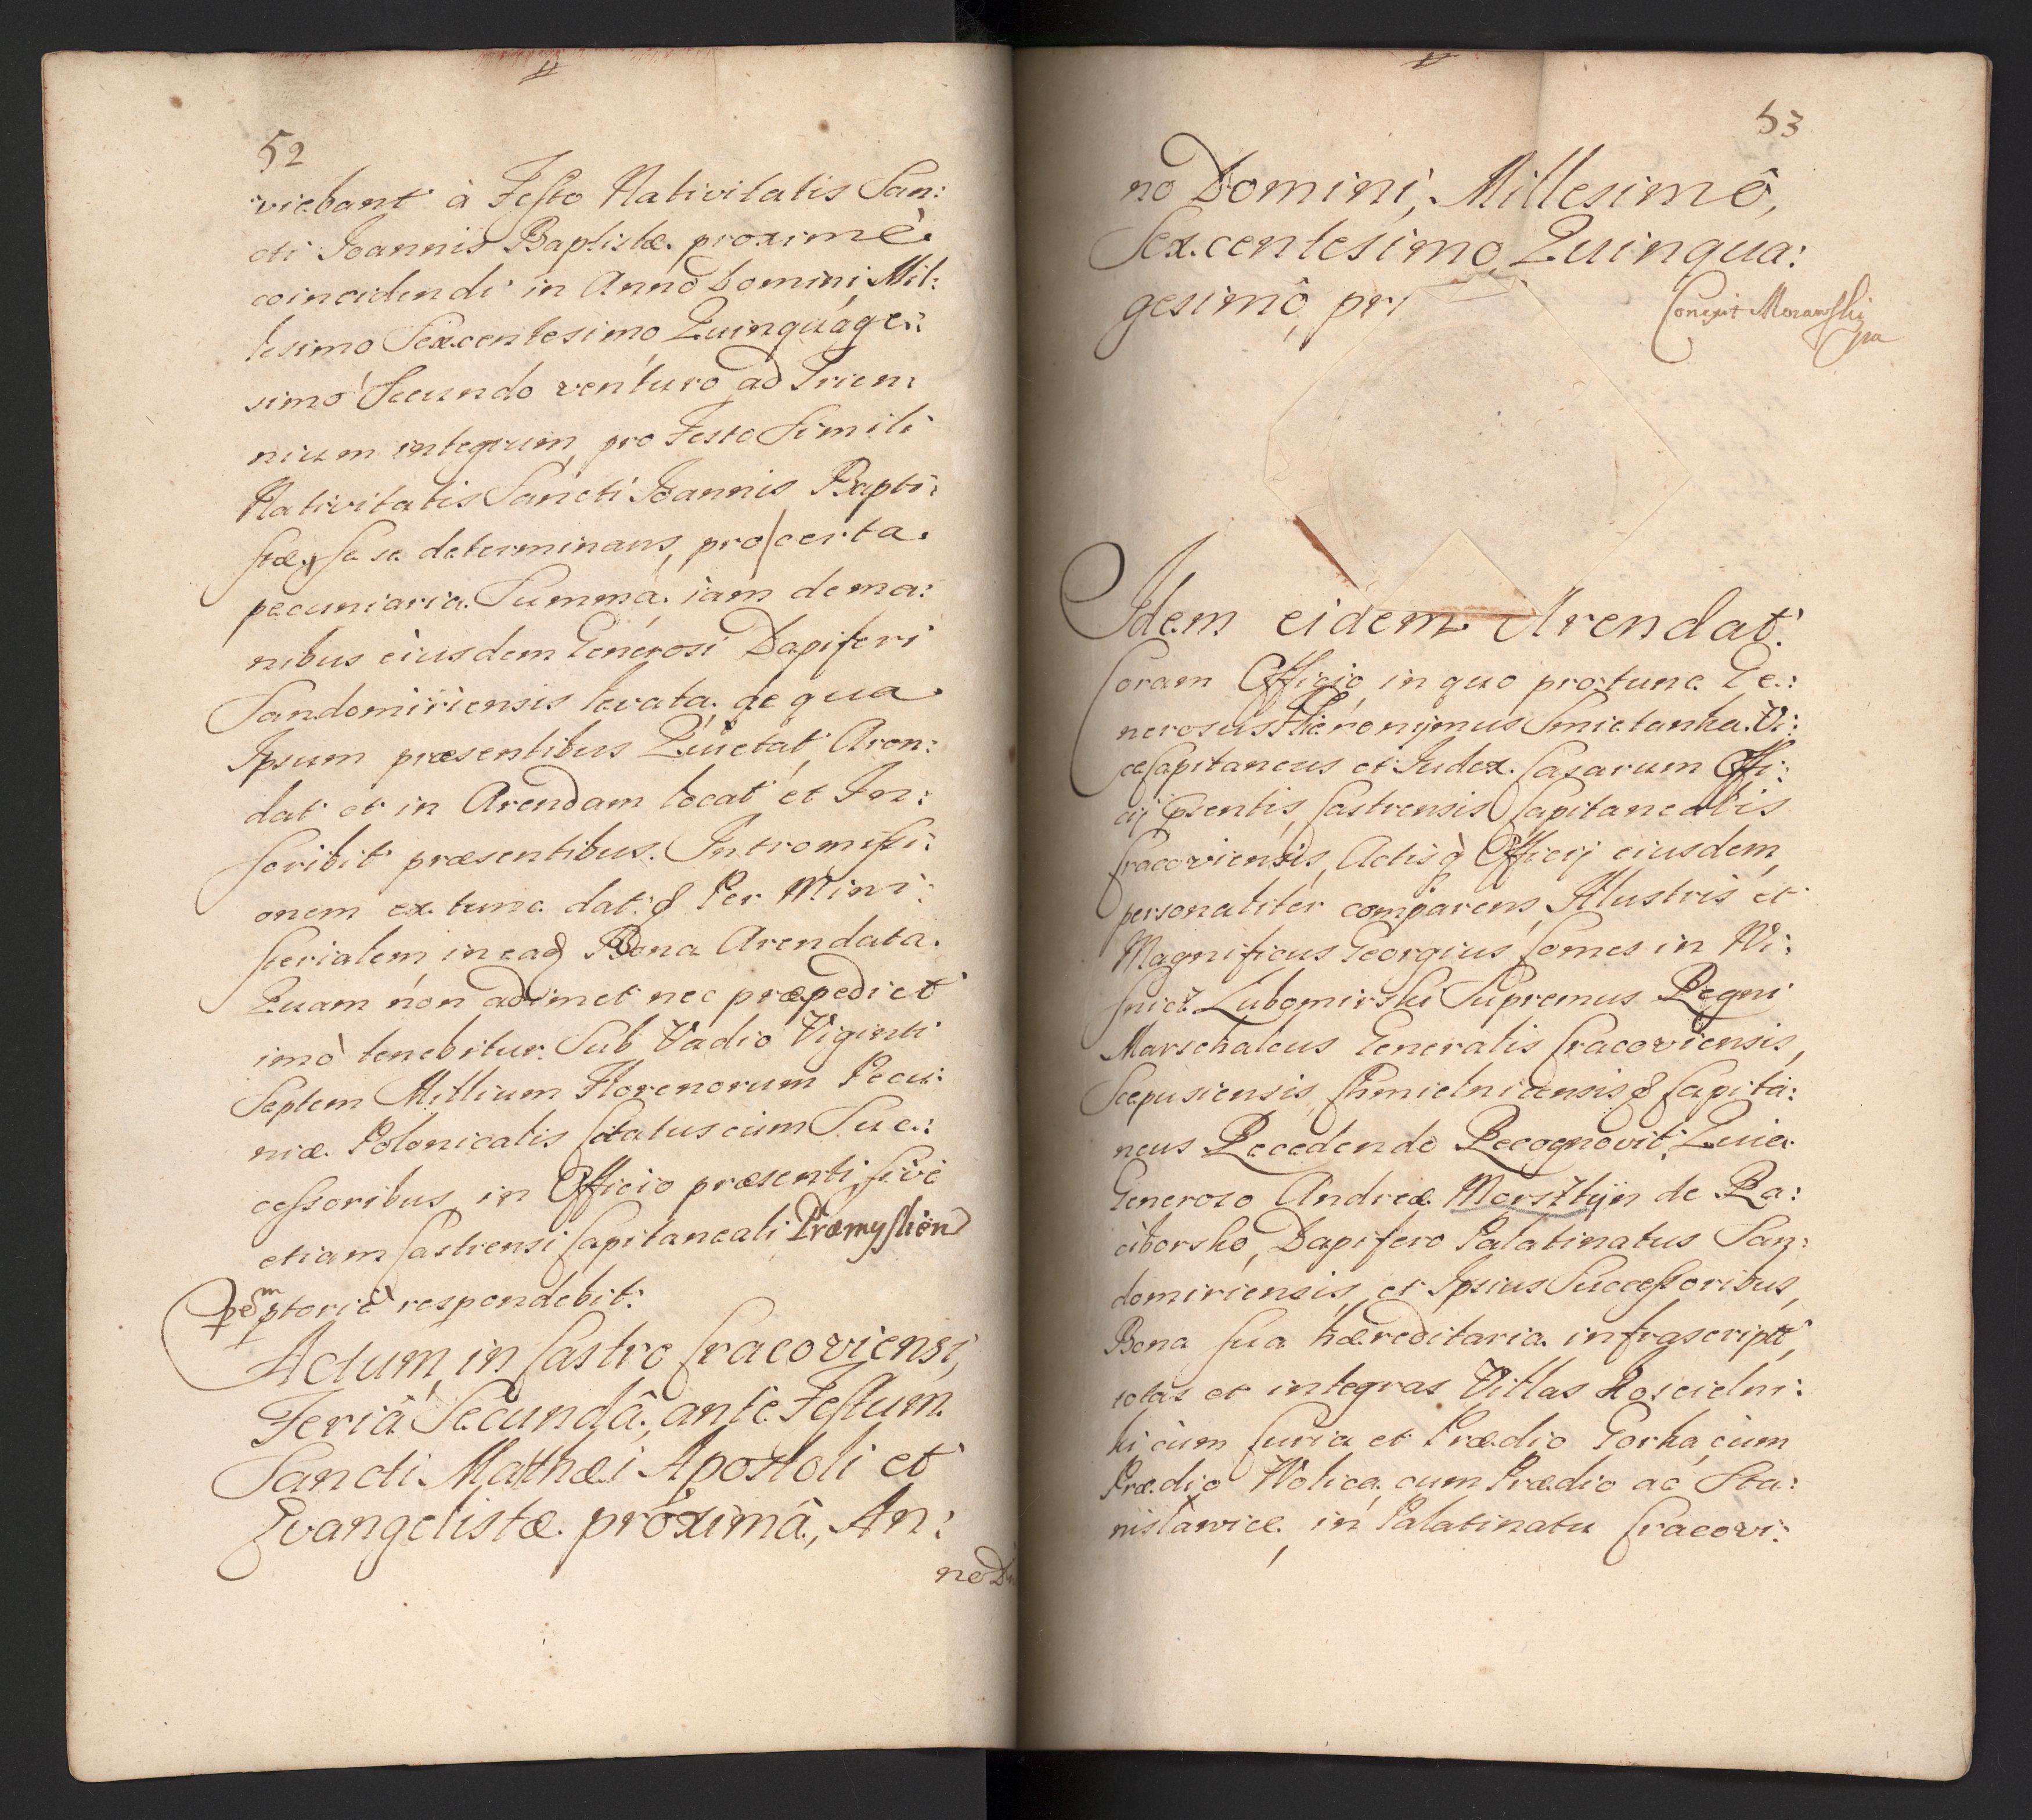 52
viebant à Festo Nativitatis San:
cti Joannis Baptistæ proximè
coincidendi in Anno Domini Mil:
lesimo Sexcentesimo Quinquage:
simo Secundo venturo ad Trien:
nium integrum, pro Festo simili
Nativitatis Sancti Joannis Bapti:
stæ, se se determinans, pro certa
pecuniaria Summa iam de ma:
nibus eiusdem Generosi Dapiferi
Sandomiriensis levata, de qua
Ipsum præsentibus Quietat, Aren:
dat et in Arendam locat et In:
scribit præsentibus. Intromissi:
onem ex tunc dat & Per Mini:
sterialem in ead Bona Arendata.
Quam non adimet nec præpediet
imò tenebitur. Sub Vadio Viginti
Septem Millium Florenorum Pecu:
niæ Polonicalis Citatus cum Suc:
cessoribus, in Officio præsenti, sive
etiam Castrensi Capitaneali Præmyslien
pemptoriè respondebit.
Actum in Castro Cracoviensi,
Feriâ Secundâ, ante Festum
Sancti Mathæi Apostoli et
Evangelistæ proximâ, An:
no D
53
no Domini, Millesimô,
Sexcentesimo, Quinqua:
gesimô, pri
Corexit Morawski
mpa
Idem eidem Arendat.
Coram Officio, in quo protunc Ge:
nerosus Hieronymus Smietanka Vi:
ceCapitaneus et Judex Causarum Offi:
cij Psentis, Castrensis Capitanealis
Cracoviensis, Actisq Officij eiusdem
personaliter comparens, Illustris et
Magnificus Georgius Comes in Wi:
snicz Lubomirski Supremus Regni
Marschalcus Generalis Cracoviensis,
Scepusiensis, Chmielnicensis & Capita:
neus Recedendo Recognovit; Quia
Generoso Andreæ Morsztyn de Ra:
ciborsko, Dapifero Palatinatus San:
domiriensis, et Ipsius Successoribus,
Bona sua hæreditaria infrascript,
totas et integras Villas Koscielni:
ki cum Curia et Prædio Gorka, cum
Prædio Wolica, cum Prædio ac Sta:
nisławice, in Palatinatu Cracovi: